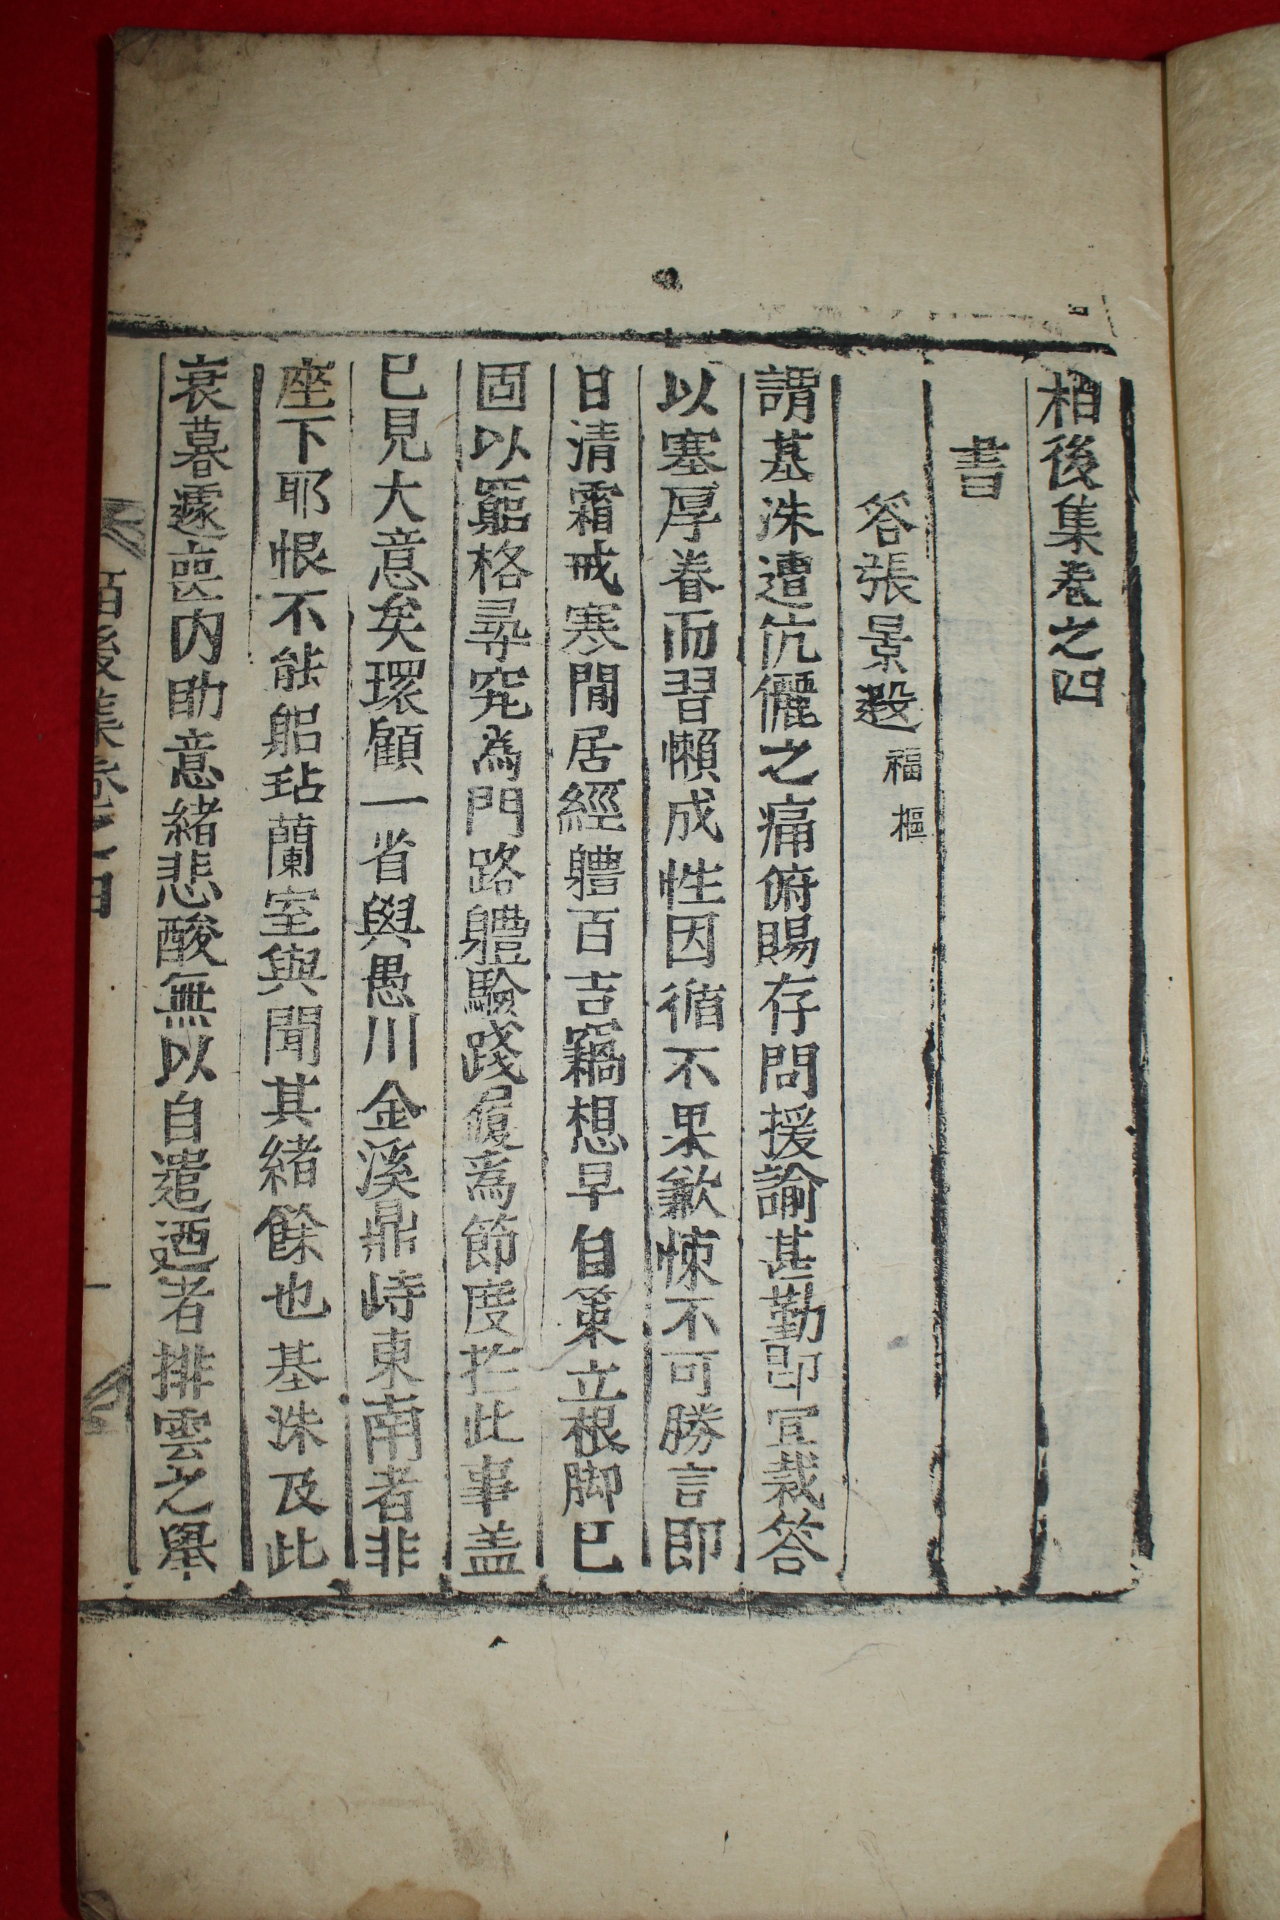 栢後集卷之四
書
答張景遐福樞
謂基洙遭伉儷之痛俯賜存問援諭甚勤卽宜裁答
以塞厚眷而習懶成性因循不果歉悚不可勝言卽
日清霜戒寒閒居經軆百吉竊想早自策立根脚已
固以窮格尋究為門路軆驗踐履為節度扵此事盖
已見大意矣環顧一省與愚川金溪鼎峙東南者非
座下耶恨不能躬玷蘭室與聞其緖餘也基洙及此
衰暮遽喪内助意緖悲酸無以自遣迺者排雲之擧
栢後集卷之四
一